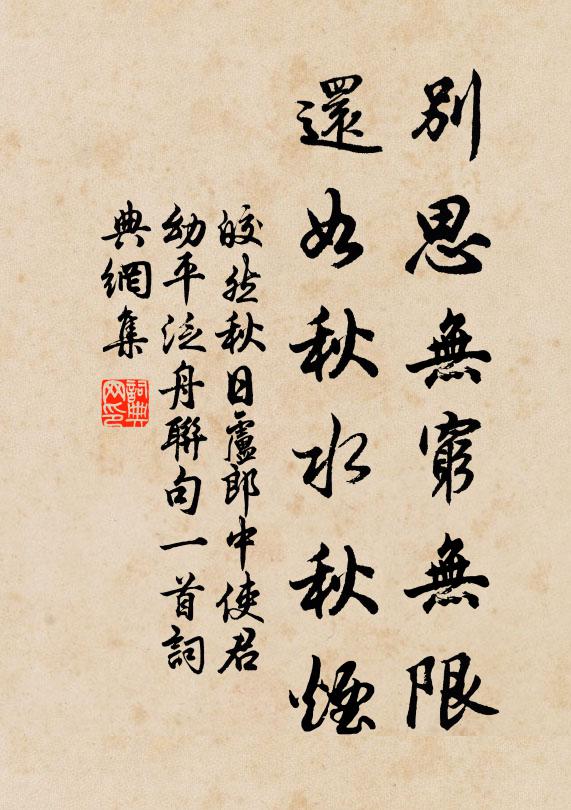 別思無窮無限
還如秋水秋煙
皎然秋日盧郎中使君
幼平泛舟聯句一首詞
典網集
詞典网印